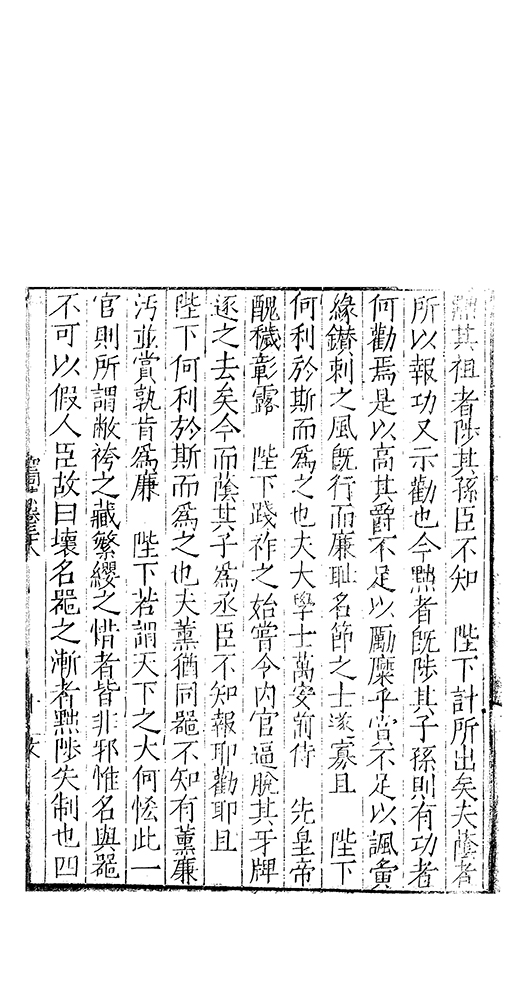 黜其祖者陟其孫臣不知　陛下計所出矣夫蔭者
所以報功又示勸也今黜者既陟其子孫則有功者
何勸焉是以高其爵不足以勵糜乎當不足以諷黃
緣鑚刺之風既行而廉耻名節之士遂寡且　陛下
何利於斯而爲之也夫大學士萬安前侍　先皇帝
醜穢彰露　陛下踐祚之始嘗令内官逼脫其牙牌
逐之去矣今而蔭其子爲丞臣不知報耶勸耶且
陛下何利於斯而爲之也夫薰猶同噐不知有薰廉
汚並賞孰肯爲廉　陛下若謂天下之大何恡此一
官則所謂敝袴之藏繁纓之惜者皆非邪惟名與噐
不可以假人臣故曰壞名噐之漸者黜陟失制也四